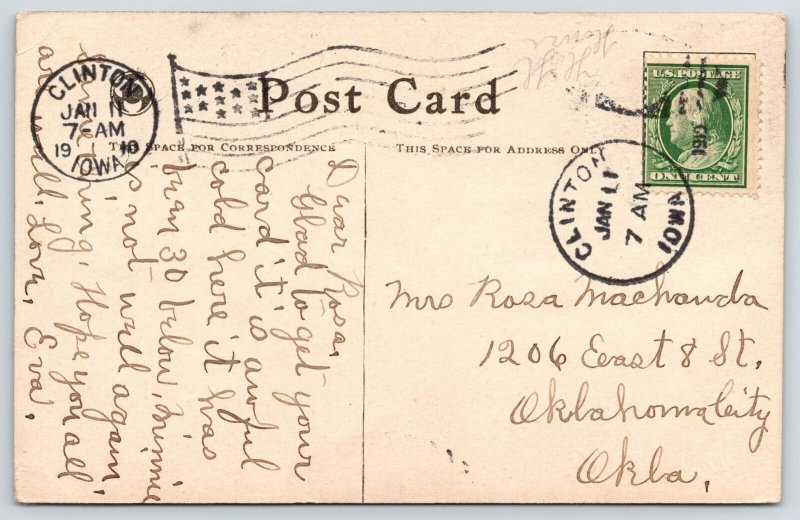 CLINTON
JAN 11
7-AM
1910
IOWA
Post Card
THIS SPACE FOR CORRESPONDENCE
THIS SPACE FOR ADDRESS ONLY
U.S. POSTAGE
ONE CENT
CLINTON
JAN 11
7 AM
IOWA
Dear Rosa,
Glad to get your
card it is awful
cold here it has
bun 30 below, Minnie
is not well again
this Hope you all
are well. Love, Eva.
Mrs Rosa Machanda
1206 East 8 St.
Oklahoma City
Okla,